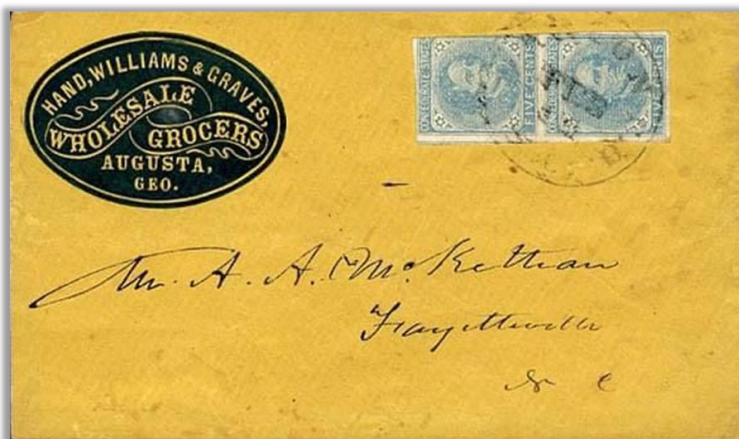 HAND, WILLIAMS & GRAVES,
WHOLESALE
GROCERS
AUGUSTA,
GEO.
CONFEDERATE STATES
FIVE CENTS
FIVE CENTS
Mr. A. A. McKethan
Fayetteville
N C